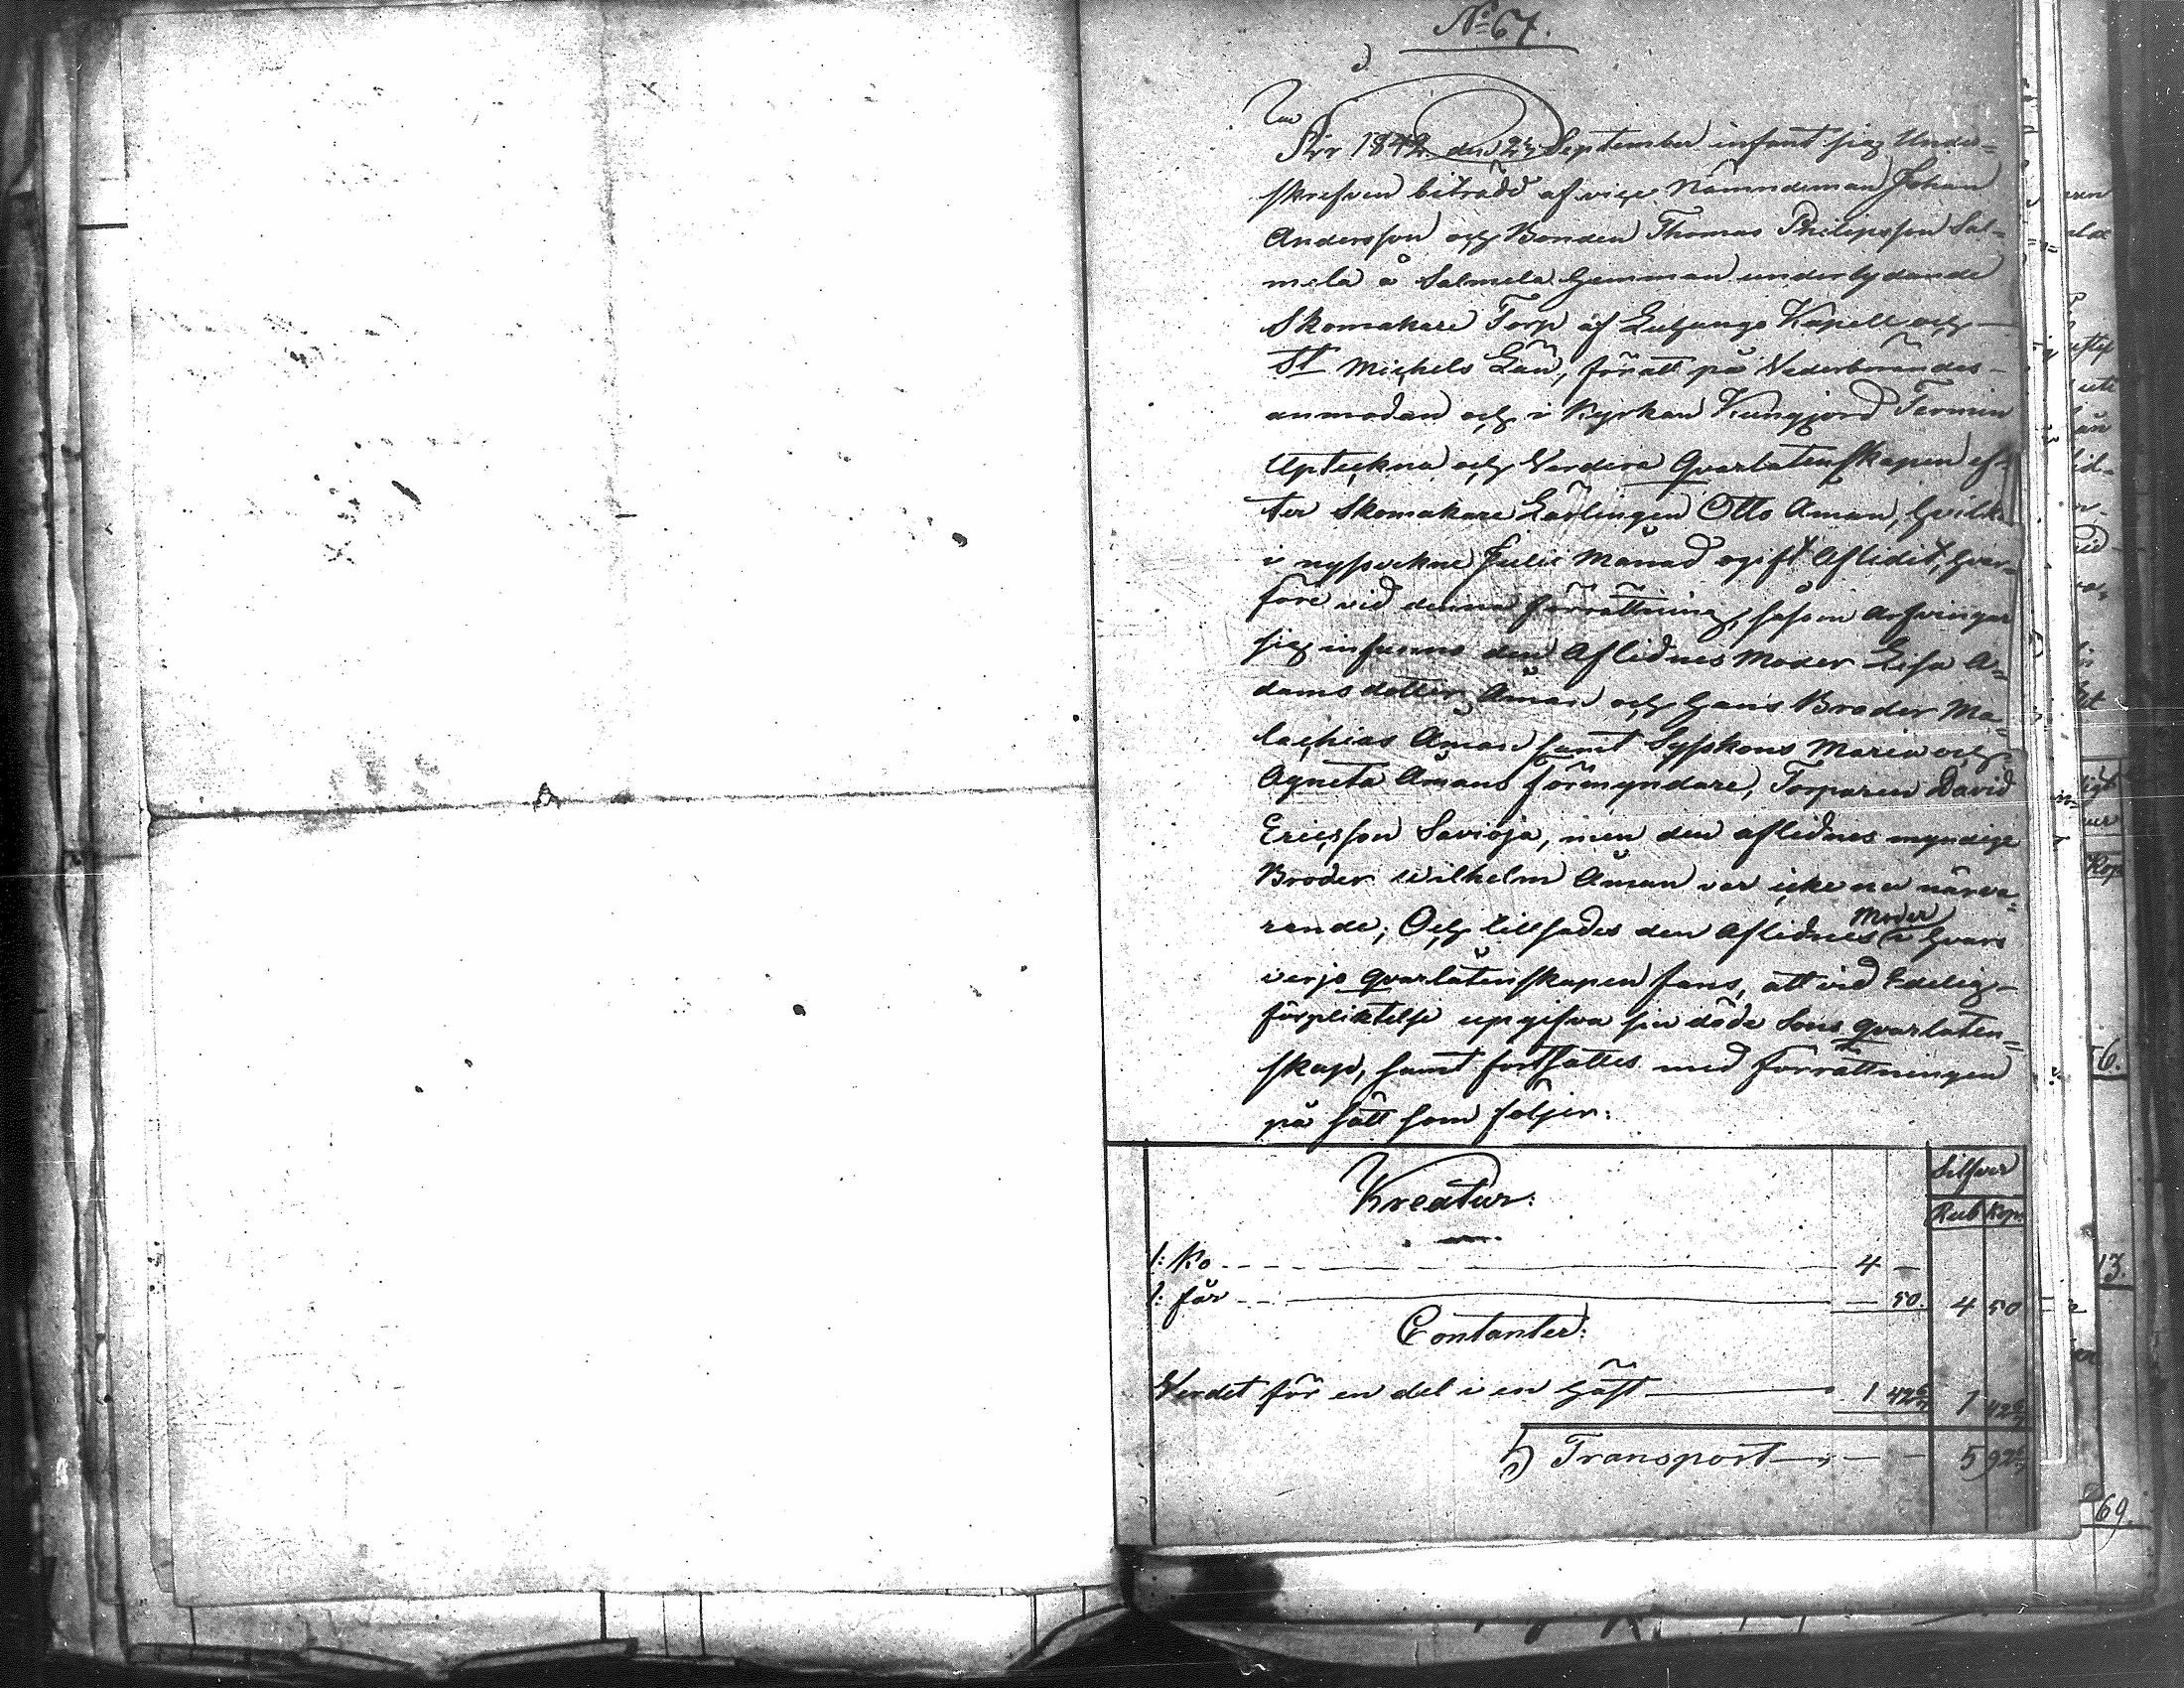 No 67.
År 1842 den 27 September infant sig Under=
skrefven biträdd af vice Nämndeman Johan
Andersson och Bonden Thomas Philipsson Sal=
mela å Salmela Hemman underlydande
Skomakare Torp af Luhango Kapell och
St Michels Län, för att på Vederbörandes
anmodan och i Kyrkan Kungjord Termin
Upteckna och Verdera Qvarlatenskapen ef=
ter Skomakare Lärlingen Otto Åman, hvilken
i nysvekne Julii Månad ogift Aflidit, hvar=
före vid denna förrättning, såsom Arfvingar
sig infunno den Aflidnes Moder Lisa A=
damsdotter Åman och hans Broder Ma=
lachias Åman samt Syskons Maria och
Agneta Åmans förmyndare, Torparen David
Ericsson Savioja, men den aflidnes myndige
Broder Wilhelm Åman var icke nu närva=
rande; Och tillsades den Aflidnes Moder i hvars
verjo qvarlåtenskapen fans, att vid Edelig
förpliktelse upgifva sin döde Sons qvarlåten=
skap, samt fortsattes med förrättningen
på sätt som följer:
Silfver
Kreatur: Rub Kop.
1: Ko 4 —
1: får — 50. 4 50
Contanter:
Verdet för en del i en häst 1 42 6/7 1 42 6/7
Transport 5 92 6/7
Kop
6.
13.
69.